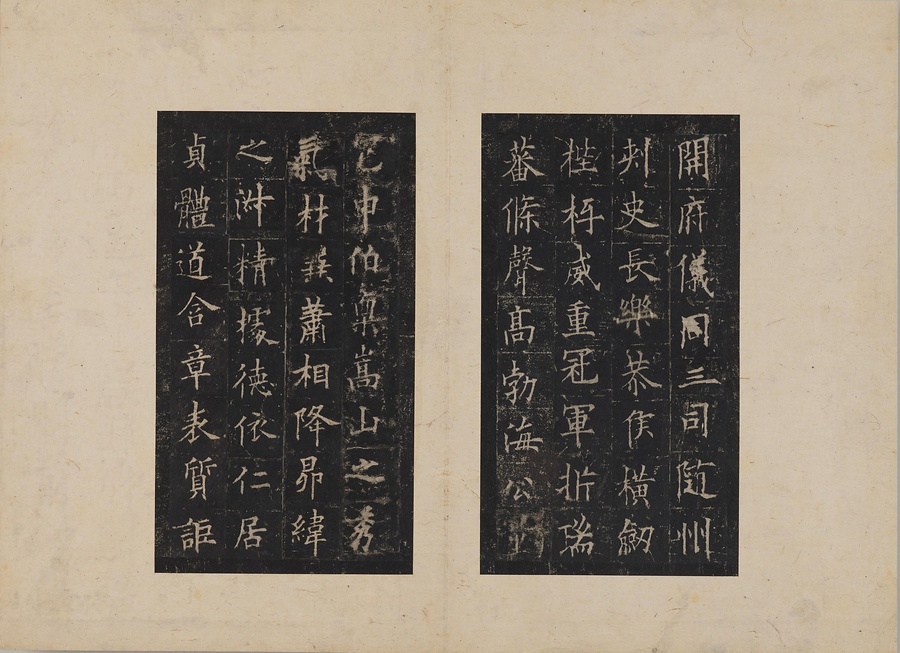 開府儀同三司隨州
刺史長樂恭侯橫劒
梐枑威重冠軍析瑞
蕃條聲高勃海公量
包申伯稟嵩山之秀
氣材兼蕭相降昴緯
之淑精據德依仁居
貞體道含章表質詎